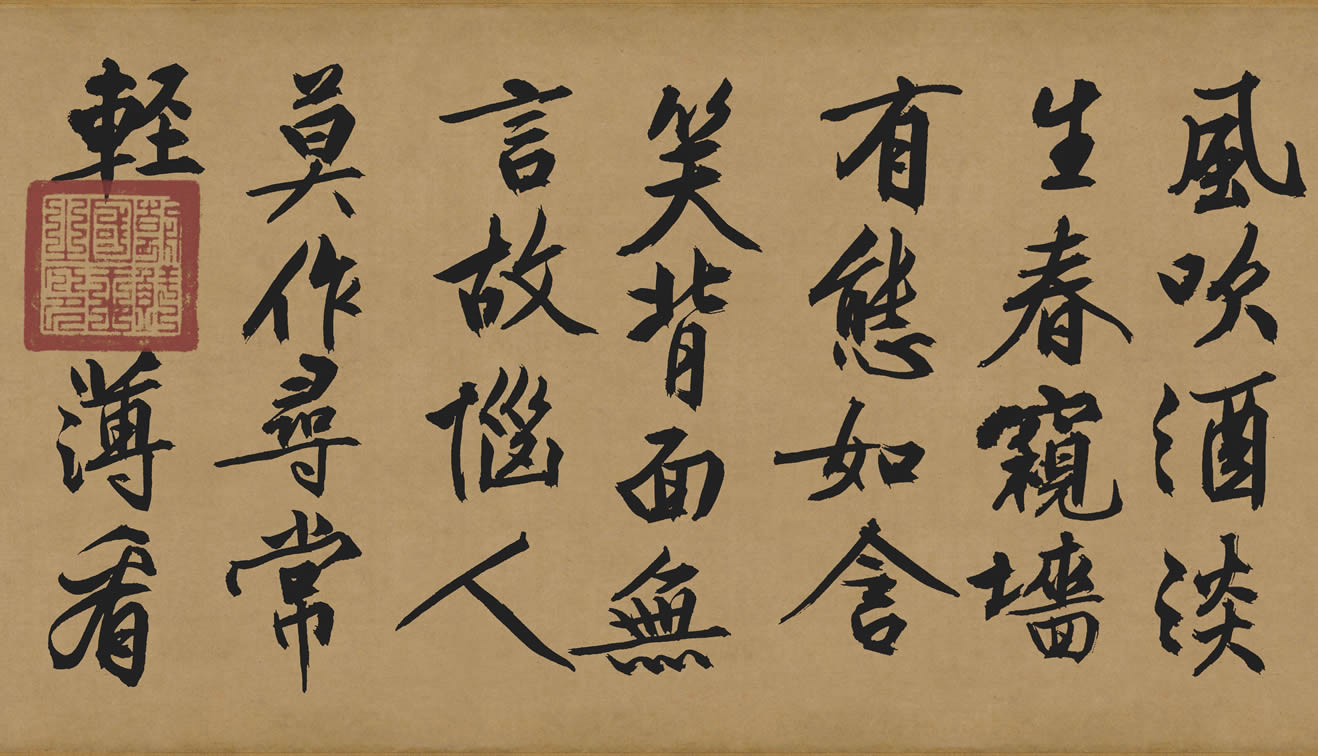 風吹酒淡
生春窺墻
有態如含
笑背面無
言故惱人
莫作尋常
輕薄看